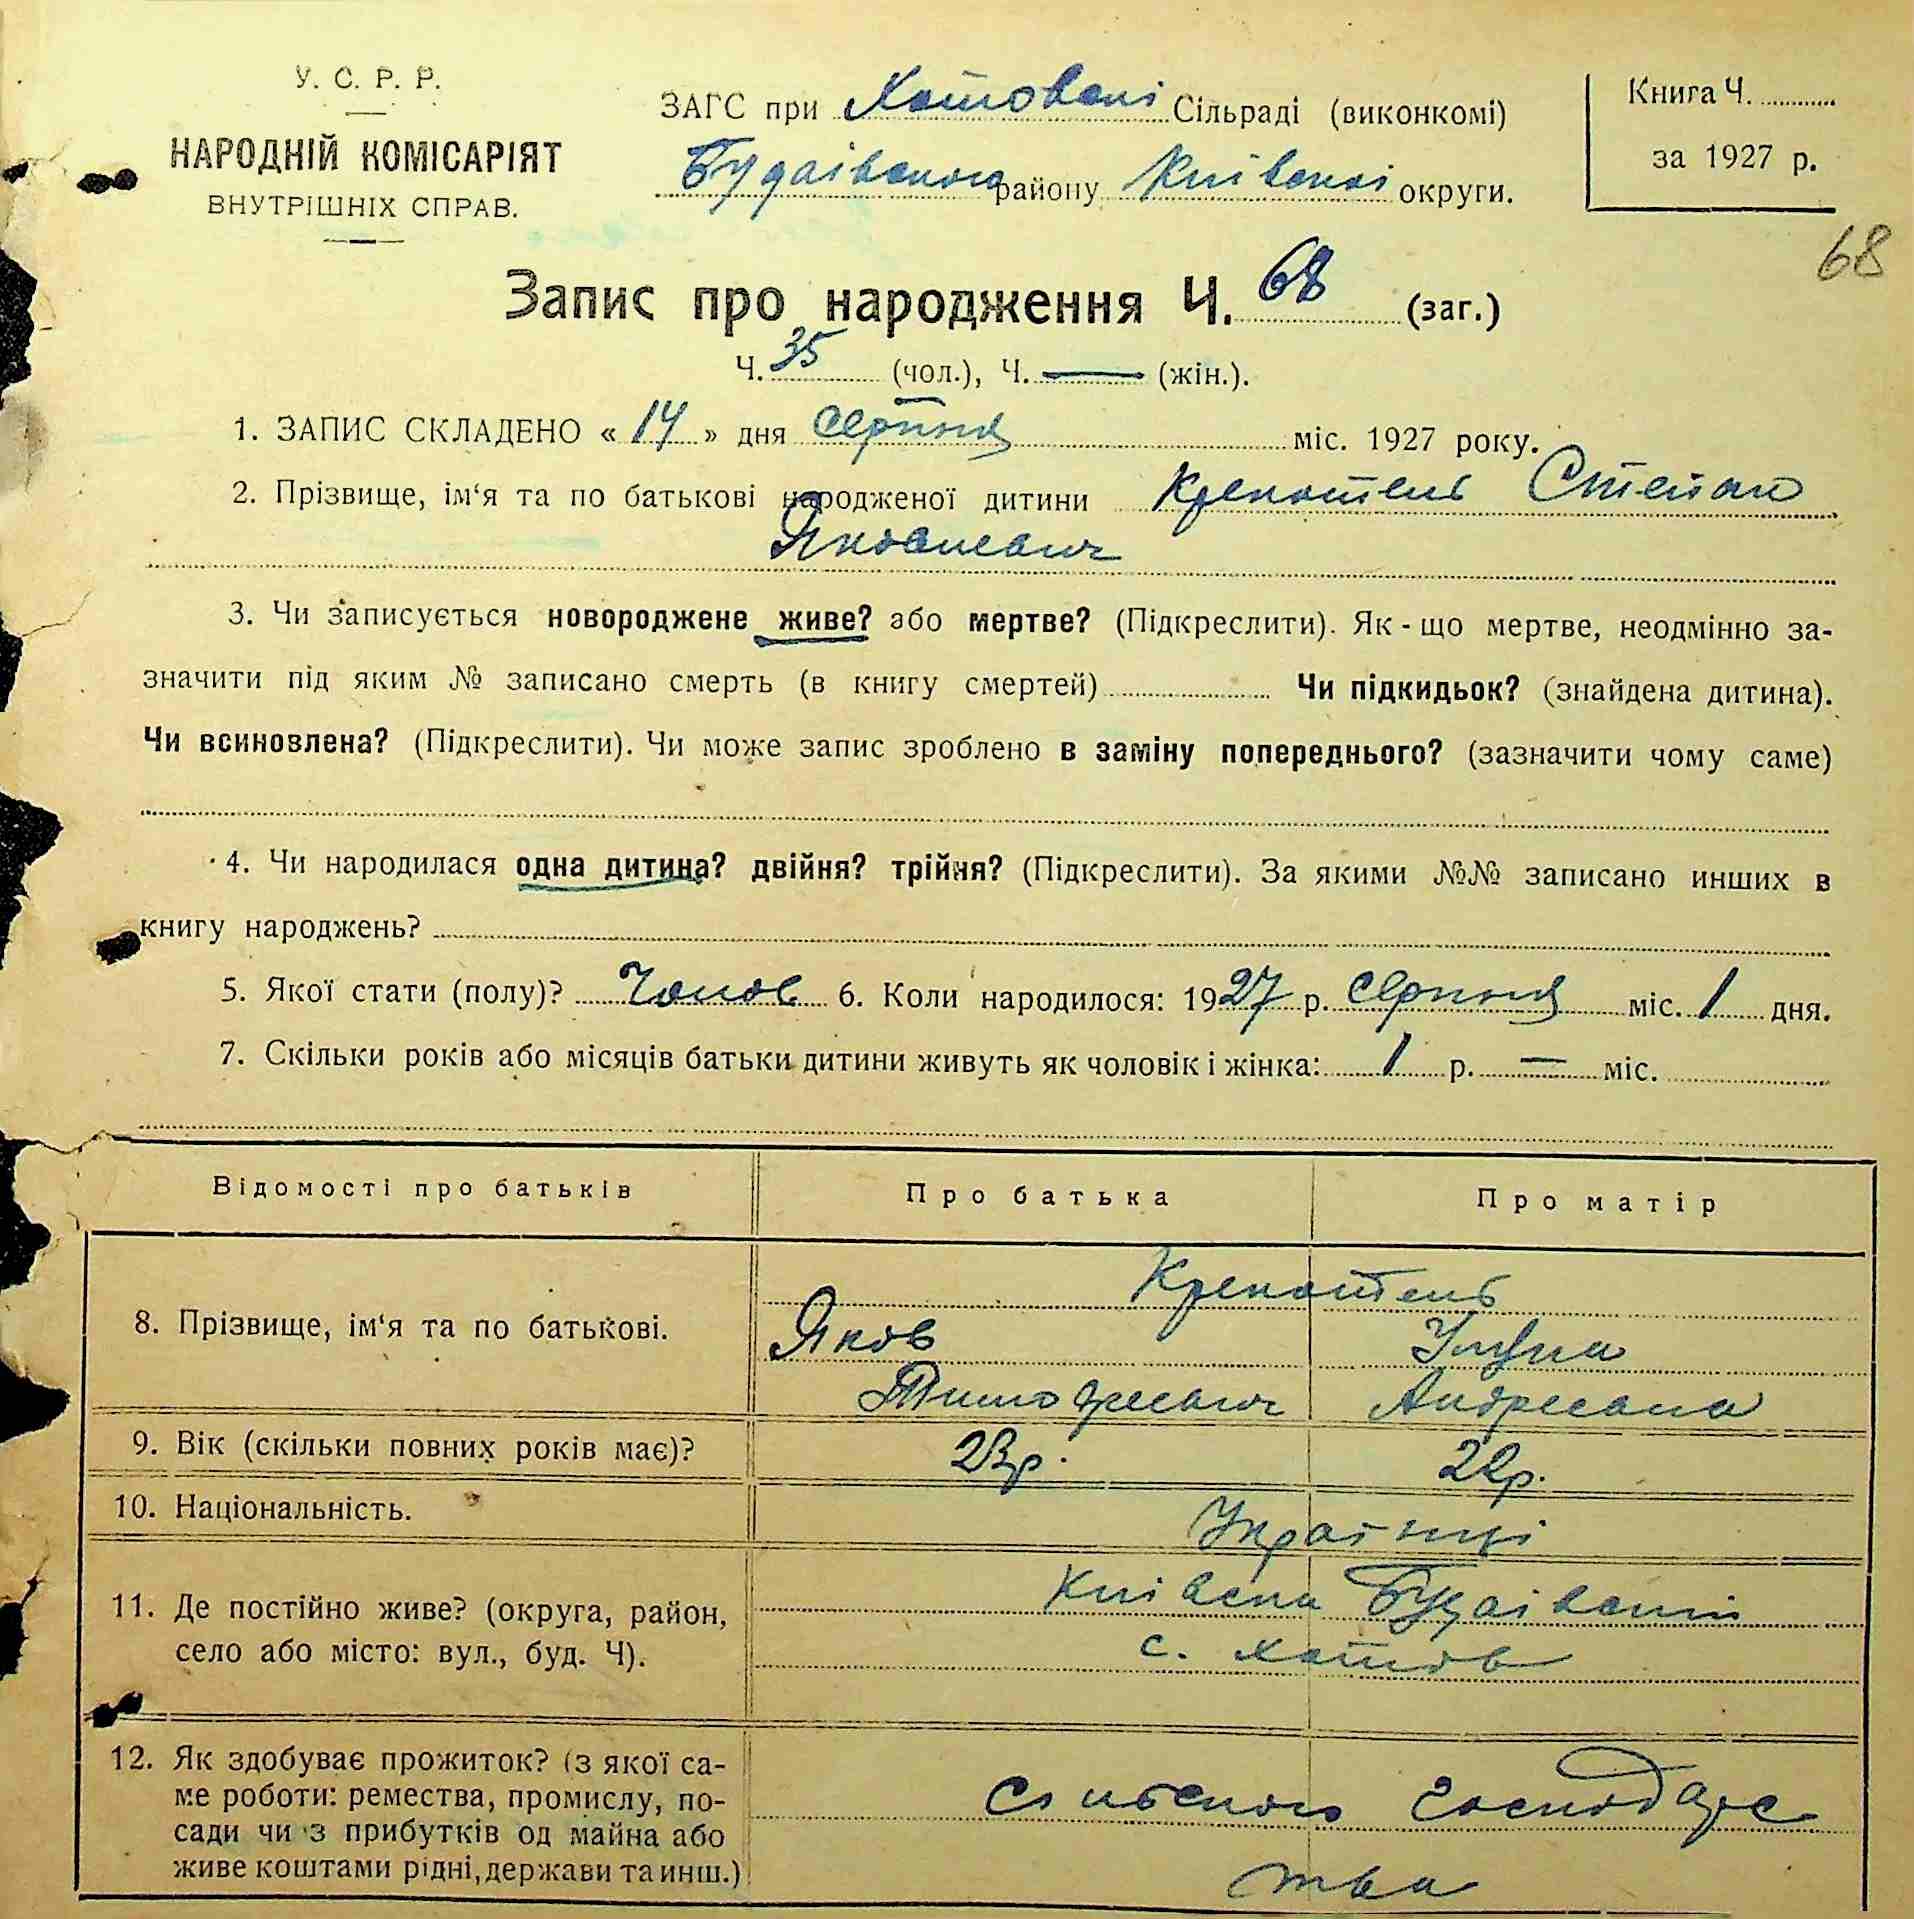 У. С. Р. Р.
НАРОДНІЙ КОМІСАРІЯТ
ВНУТРІШНІХ СПРАВ.
ЗАГС при Хотовські Сільраді (виконкомі)
Будаівського району Київської округи.
Книга Ч.
за 1927 р.
68
Запис про народження Ч. 68 (заг.)
Ч. 35 (чол.), Ч. — (жін.).
1. ЗАПИС СКЛАДЕНО « 14 » дня серпня міс. 1927 року.
2. Прізвище, ім‘я та по батькові народженої дитини Крекотень Степан
Яковлевич
3. Чи записується новороджене живе? або мертве? (Підкреслити). Як-що мертве, неодмінно за-
значити під яким № записано смерть (в книгу смертей) Чи підкидьок? (знайдена дитина).
Чи всиновлена? (Підкреслити). Чи може запис зроблено в заміну попереднього? (зазначити чому саме)
4. Чи народилася одна дитина? двійня? трійня? (Підкреслити). За якими №№ записано инших в
книгу народжень?
5. Якої стати (полу)? Чолов 6. Коли народилося: 1927 р. серпня міс. 1 дня.
7. Скільки років або місяців батьки дитини живуть як чоловік і жінка: 1 р. — міс.
Відомості про батьків Про батька Про матір
8. Прізвище, ім‘я та по батькові.
Крекотень
Яков
Тимофеевич Андреевна
9. Вік (скільки повних років має)? 23р. 22р.
10. Національність. Українці
11. Де постійно живе? (округа, район,
село або місто: вул., буд. Ч).
Київська Будаівський
с. Хотов
12. Як здобуває прожиток? (з якої са-
ме роботи: ремества, промислу, по-
сади чи з прибутків од майна або
живе коштами рідні, держави та инш.)
сільського господарс
тва